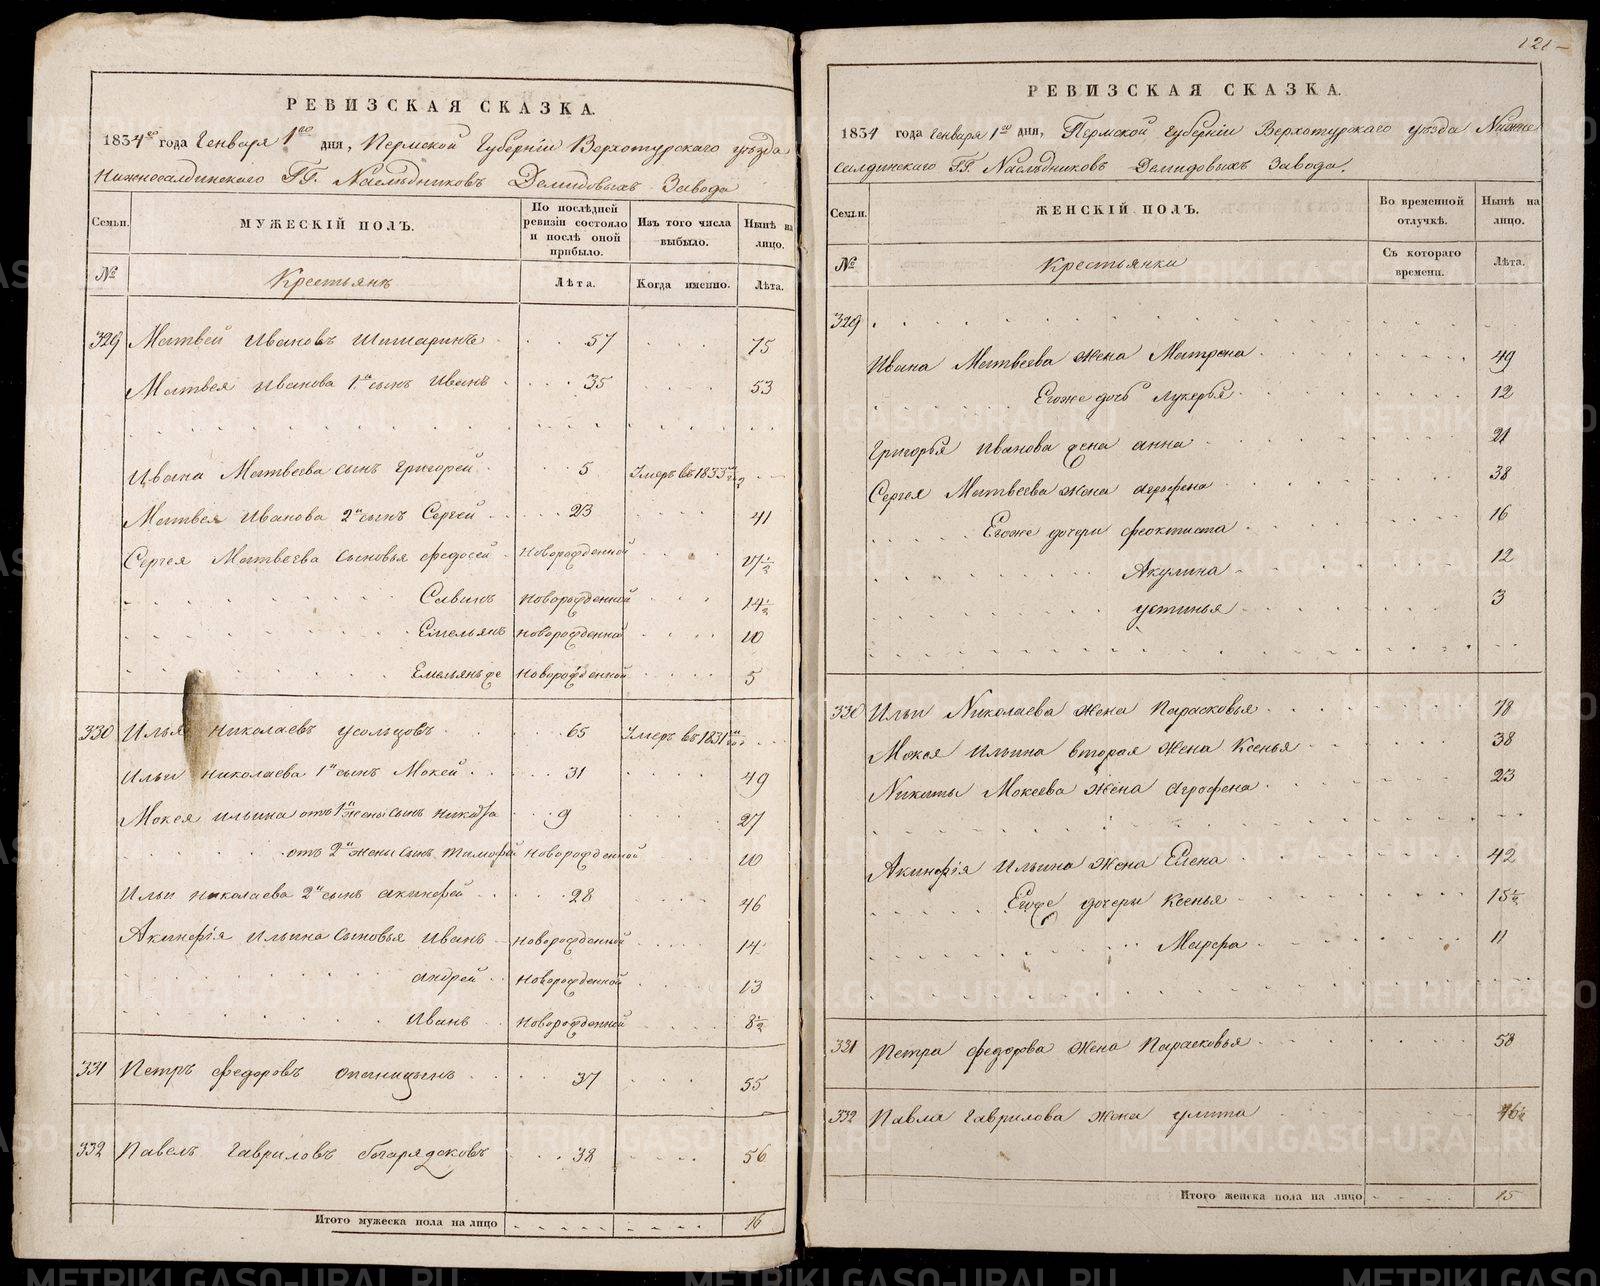 РЕВИЗСКАЯ СКАЗКА.
1834го года Генваря 1го дня, Пермской Губерніи Верхотурскаго уѣзда
Нижнесалдинскаго ГГ. Наслѣдниковъ Демидовыхъ Завода
Семьи.
МУЖЕСКІЙ ПОЛЪ.
По послѣдней ревизіи состояло и послѣ оной прибыло.
Изъ того числа выбыло.
Нынѣ на лицо.
№
Крестьянъ
Лѣта.
Когда именно.
Лѣта.
329 Матвей Ивановъ 57 75
Матвея Иванова 1й сынъ Иванъ 35 53
Ивана Матвеева сынъ Григорей 5 Умеръ въ 1833м году
Матвея Иванова 2й сынъ Сергей 23 41
Сергея Матвеева сыновья Федосей Новорожденной 17½
Савинъ Новорожденной 14½
Емельянъ Новорожденной 10
Емельянъ же Новорожденной 5
330 Илья Николаевъ Усольцовъ 65 Умеръ въ 1831м году
Ильи Николаева 1й сынъ Мокей 31 49
Мокея Ильина отъ 1й жены сынъ Никита 9 27
отъ 2й жены сынъ Тимофей Новорожденной 10
Ильи Николаева 2й сынъ Акинфей 28 46
Акинфія Ильина сыновья Иванъ Новорожденной 14
Андрей Новорожденной 13
Иванъ Новорожденной 8½
331 Петръ Федоровъ 37 55
332 Павелъ Гавриловъ 38 56
Итого мужеска пола на лицо 16
121
РЕВИЗСКАЯ СКАЗКА.
1834 года Генваря 1го дня, Пермской Губерніи Верхотурскаго уѣзда Нижне
салдинскаго ГГ. Наслѣдниковъ Демидовыхъ Завода.
Семьи.
ЖЕНСКІЙ ПОЛЪ.
Во временной отлучкѣ.
Нынѣ на лицо.
№
Крестьянки
Съ котораго времени.
Лѣта.
329
Ивана Матвеева жена Матрена 49
Егоже дочь Лукерья 12
Григорья Иванова жена Анна 21
Сергея Матвеева жена Агрофена 38
Егоже дочери Феоктиста 16
Акулина 12
Устинья 3
330 Ильи Николаева жена Парасковья 78
Мокея Ильина вторая жена Ксенья 38
Никиты Мокеева жена Агрофена 23
Акинфія Ильина жена Елена 42
Егоже дочери Ксенья 15½
Марфа 11
331 Петра Федорова жена Парасковья 58
332 Павла Гаврилова жена Улита
Итого женска пола на лицо 15
METRIKI.GASO-URAL.RU